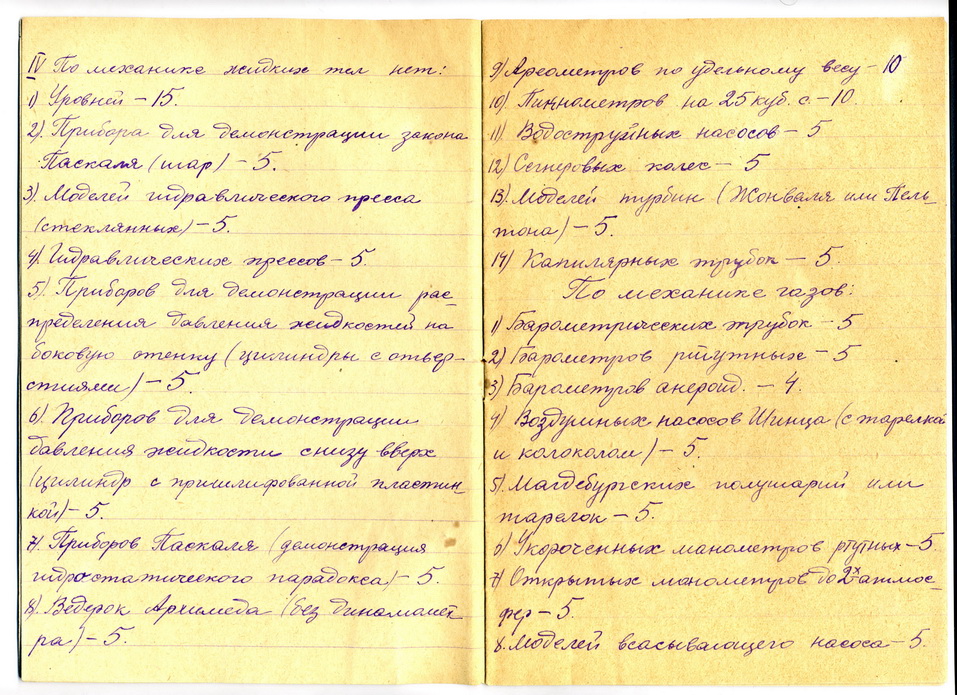 IV По механике жидких тел нет:
1) Уровней – 15.
2). Прибора для демонстрации закона
Паскаля (шар) – 5.
3). Моделей гидравлического пресса
(стеклянных) – 5.
4). Гидравлических прессов – 5.
5). Приборов для демонстрации рас-
пределения давления жидкостей на
боковую стенку (цилиндры с отвер-
стиями) – 5.
6). Приборов для демонстрации
давления жидкости снизу вверх
(цилиндр с пришлифованной пластин-
кой) – 5.
7). Приборов Паскаля (демонстрация
гидростатического парадокса) – 5.
8). Ведерок Архимеда (без динамомет-
ра) – 5.
9) Ареометров по удельному весу – 10
10). Пикнометров на 25 куб. с. – 10.
11). Водоструйных насосов – 5
12) Сегнеровых колес – 5
13). Моделей турбин (Жонваля или Пель-
тона) – 5.
14). Капилярных трубок – 5.
По механике газов:
1) Барометрических трубок – 5
2) Барометров ртутных – 5
3) Барометров анероид. – 4.
4) Воздушных насосов Шинца (с тарелкой
и колоколом) – 5.
5). Магдебургских полушарий или
тарелок – 5.
6) Укороченных манометров ртутных – 5.
7) Открытых манометров до 2х атмос-
фер – 5.
8. Моделей всасывающего насоса – 5.